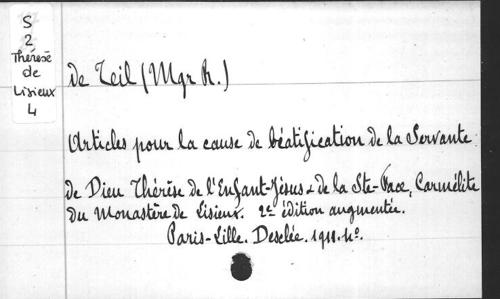 S
2
Thérèse
de
Lisieux
4
de Teil (Mgr R.)
Articles pour la cause de béatification de la Servante
de Dieu Thérèse de l'Enfant-Jésus & de la Ste-Face, Carmélite
du Monastère de Lisieux. 2e édition augmentée.
Paris-Lille. Desclée. 1911. 4o.